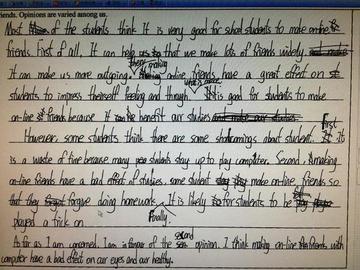 friends. Opinions are varied among us.
Most of the students think It is very good for school students to make on-line
friends. First of all, It can help us that we make lots of friends widely.
It can make us more outgoing. making on-line friends have a great effect on
students to impress theirself feeling and through It is good for students to make
on-line friends because It can benefit our studies
However, some students think there are some shortcomings about student. First, It
is a waste of time because many students stay up to play computer. Second, making
on-line friends have a bad effect of studies. some student make on-line friends so
that they forgue doing homework. It is likely for students to be
played a trick on. Finally,
As far as I am concerned, I am in favour of the second opinion. I think making on-line friends with
computer have a bad effect on our eyes and our healthy.